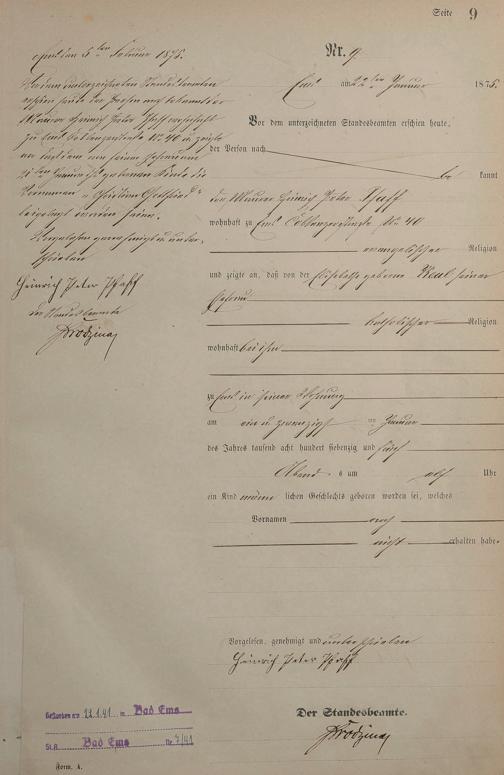 Seite 9
Ems den 5ten Februar 1875.
Vor dem unterzeichneten Standesbeamten
erschien heute der Person nach bekannt der
Maurer Heinrich Peter Pfaff wohnhaft
zu Ems Coblenzerstraße No 40 u. zeigte
an daß dem von seiner Ehefrau am
21ten Januar geborenen Kinde die
Vornamen
beigelegt worden seien.
Vorgelesen genehmigt u. unter-
schrieben
Heinrich Peter Pfaff
der Standesbeamte
Nr. 9.
Ems am 22ten Januar 1875
Vor dem unterzeichneten Standesbeamten erschien heute,
der Person nach
be kannt
der Maurer Heinrich Peter Pfaff
wohnhaft zu Ems Coblenzerstraße No 40
evangelischer Religion
und zeigte an, daß von der Elisabetha geborene seiner
Ehefrau
katholischer Religion
wohnhaft bei ihm
zu Ems in seiner Wohnung
am ein u. zwanzigst en Januar
des Jahres tausend acht hundert siebenzig und fünf
Abend s um elf Uhr
ein Kind männ lichen Geschlechts geboren worden sei, welches
Vornamen noch
nicht erhalten habe.
Vorgelesen, genehmigt und unterschrieben
Heinrich Peter Pfaff
Der Standesbeamte.
Gestorben am 22.1.41 in Bad Ems
St.A. Bad Ems Nr. 7/41
Form. A.